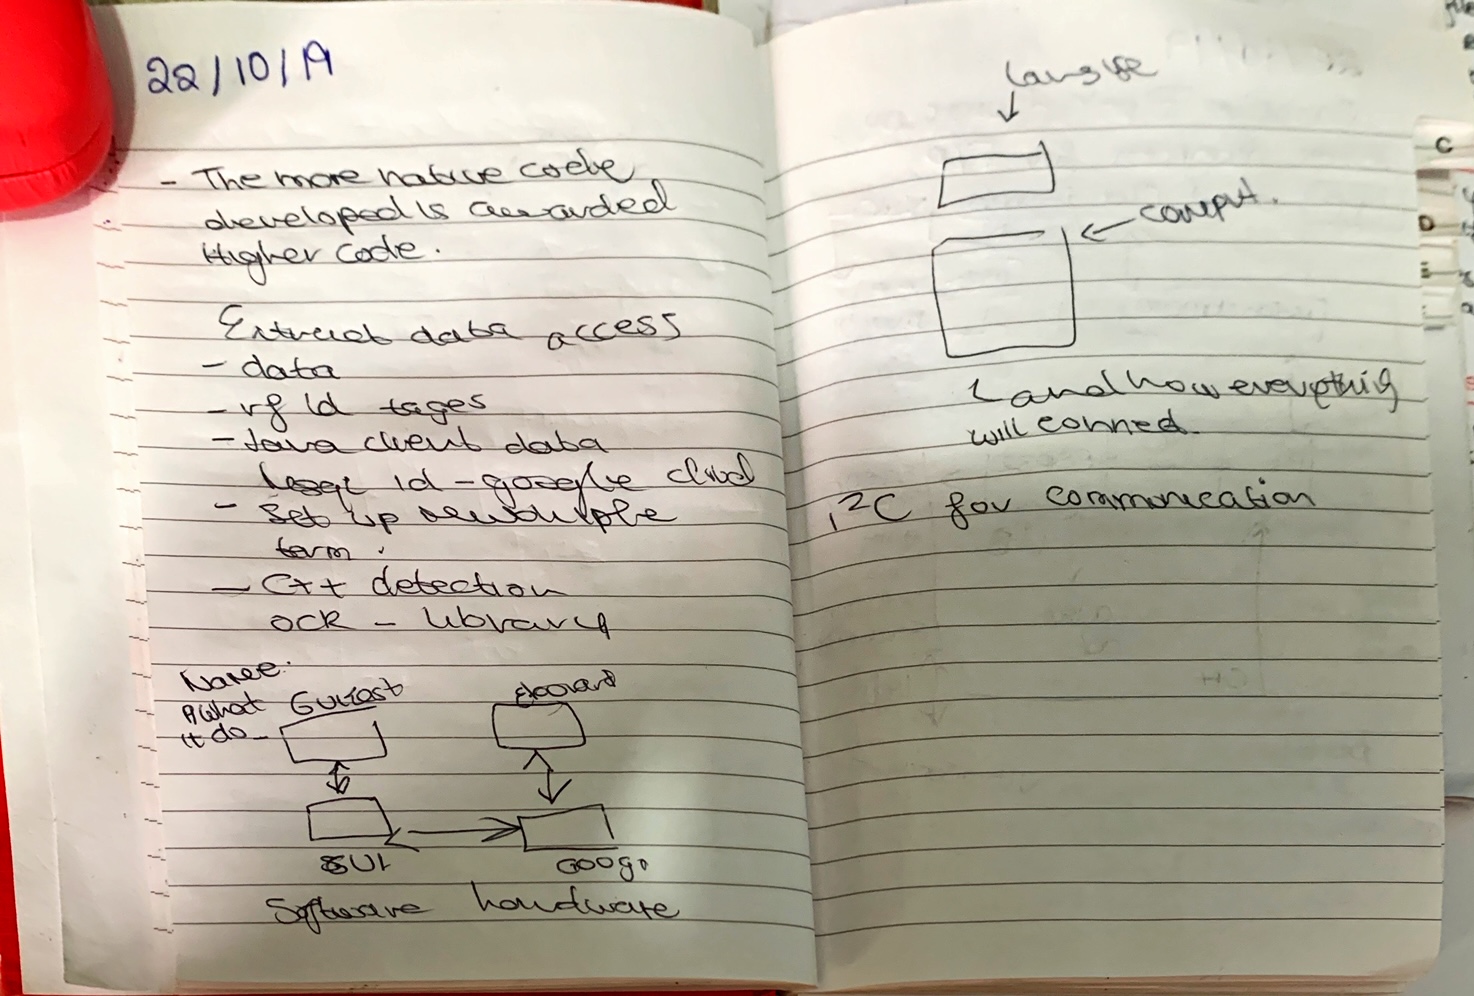 22/10/19
- The more native code
developed is awarded
Higher code.
Extract data access
- data
- rf Id tages
- Java client data
id - google cloud
- Set up
term.
- C++ detection
OCR - library
Name.
what
it do -
GUI
Googo
Software hardware
and how everything
will connect.
I2C for communication